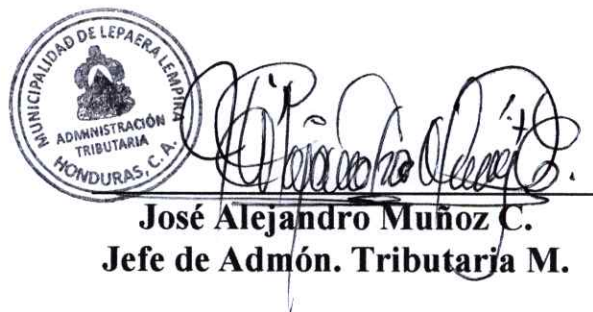 MUNICIPALIDAD DE LEPAERA LEMPIRA
ADMINISTRACIÓN
TRIBUTARIA
HONDURAS, C. A.
José Alejandro Muñoz C.
Jefe de Admón. Tributaria M.